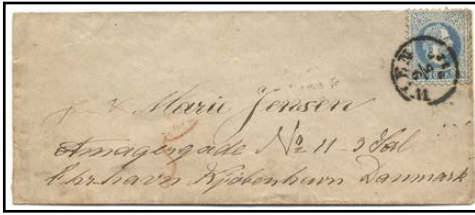 Marie Jensen
Amagergade No 11 - 3 Sal
Chrhavn Kjöbenhavn Danmark